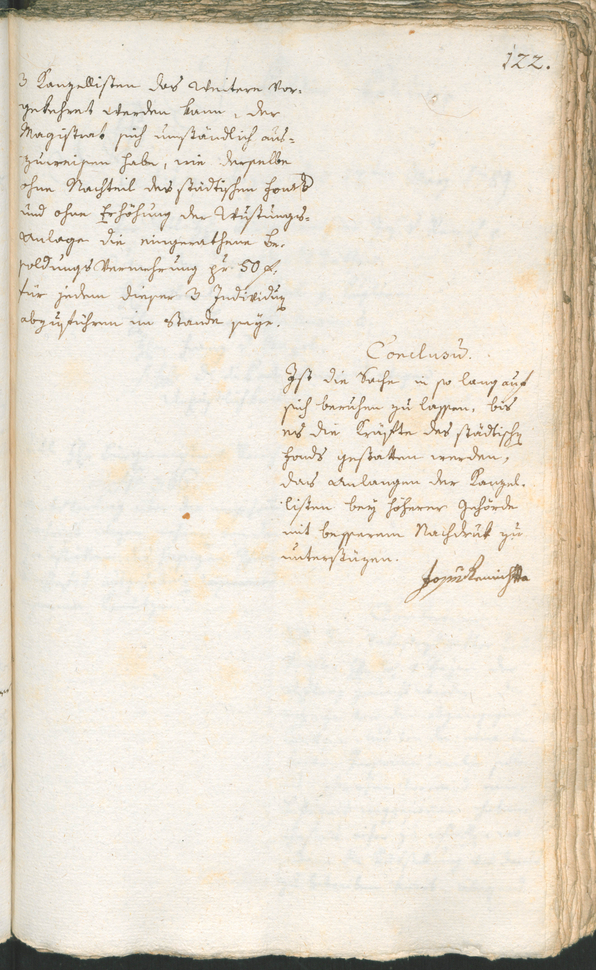 122.
3 Kanzellisten das Weitere vor-
gekehret werden kann, der
Magistrat sich umständlich aus-
zuweisen habe, wie derselbe
ohne Nachteil des städtischen Fonds
und ohne Erhöhung der Wustungs-
anlage die eingerathene Be-
soldungs Vermehrung pr. 50 f.
für jedem dieser 3 Individuen
abzuführen im Stande seye.
Conclusum.
Ist die Sache in so lang auf
sich beruhen zu lassen, bis
es die Kräfte des städtischen
Fonds gestatten werden,
das Anlangen der Kanzel-
listen bey höherer Behörde
mit besserem Nachdruk zu
unterstüzen.